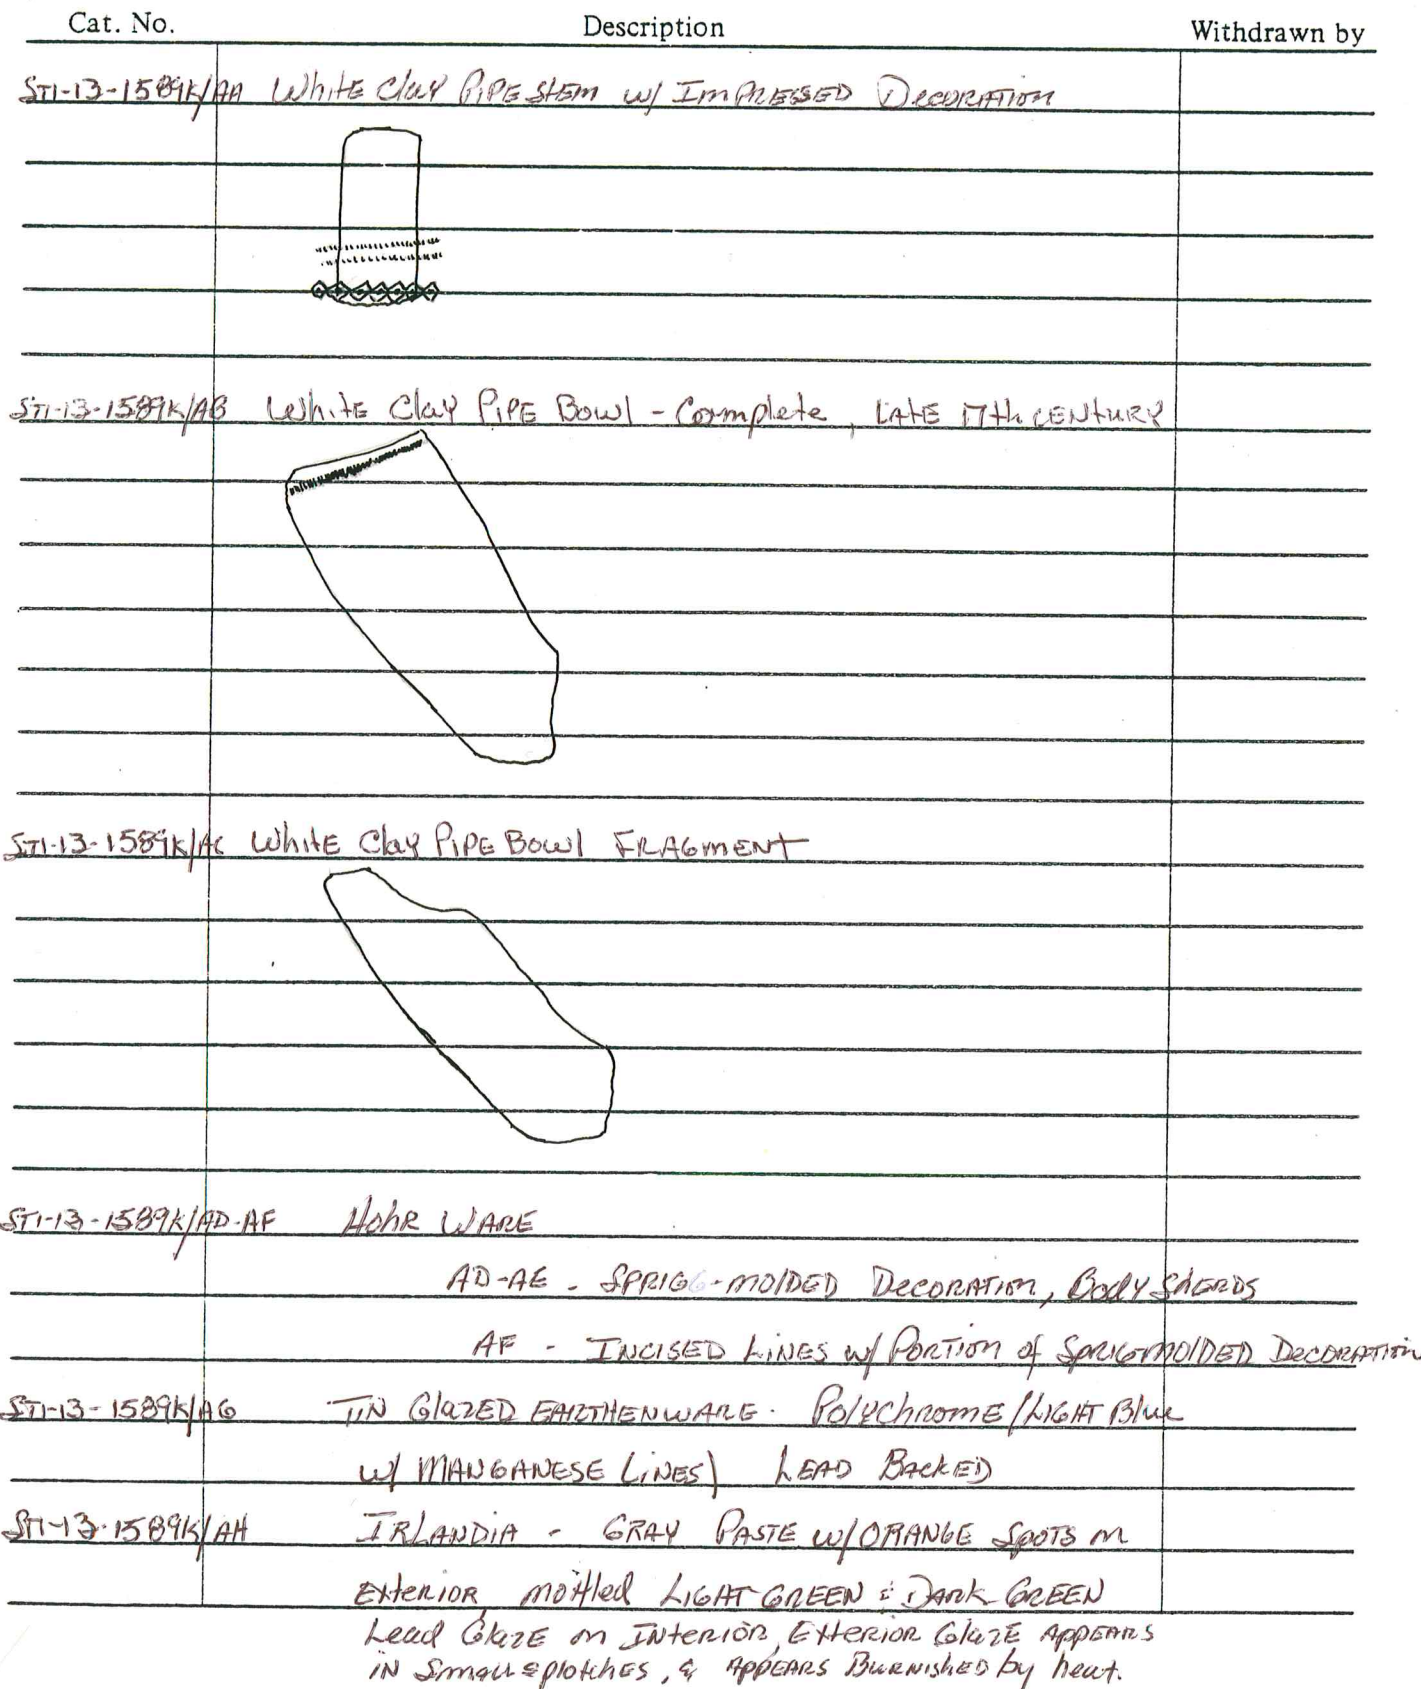 Cat. No. Description Withdrawn by
ST1-13-1589K/AA White Clay PIPE Stem w/ IMPRESSED Decoration
ST1-13-1589K/AB White Clay PIPE Bowl - Complete, LATE 17th CENTURY
ST1-13-1589K/AC White Clay PIPE Bowl FRAGMENT
ST1-13-1589K/AD-AF Hohr WARE
AD-AE - SPRIGG-MOLDED Decoration, Body SHERDS
AF - INCISED LINES w/ PORTION of SPRIG-MOLDED DECORATION
ST1-13-1589K/AG TIN GlazED EARTHENWARE. Polychrome/LIGHT Blue
w/ MANGANESE LINES) LEAD BACKED
ST1-13-1589K/AH IRLANDIA - GRAY PASTE w/ORANGE SPOTS on
EXTERIOR, mottled LIGHT GREEN & DARK GREEN
Lead GlaZE on INTERIOR, EXTERIOR GlaZE APPEARS
IN Small splotches, & APPEARS BURNISHED by heat.